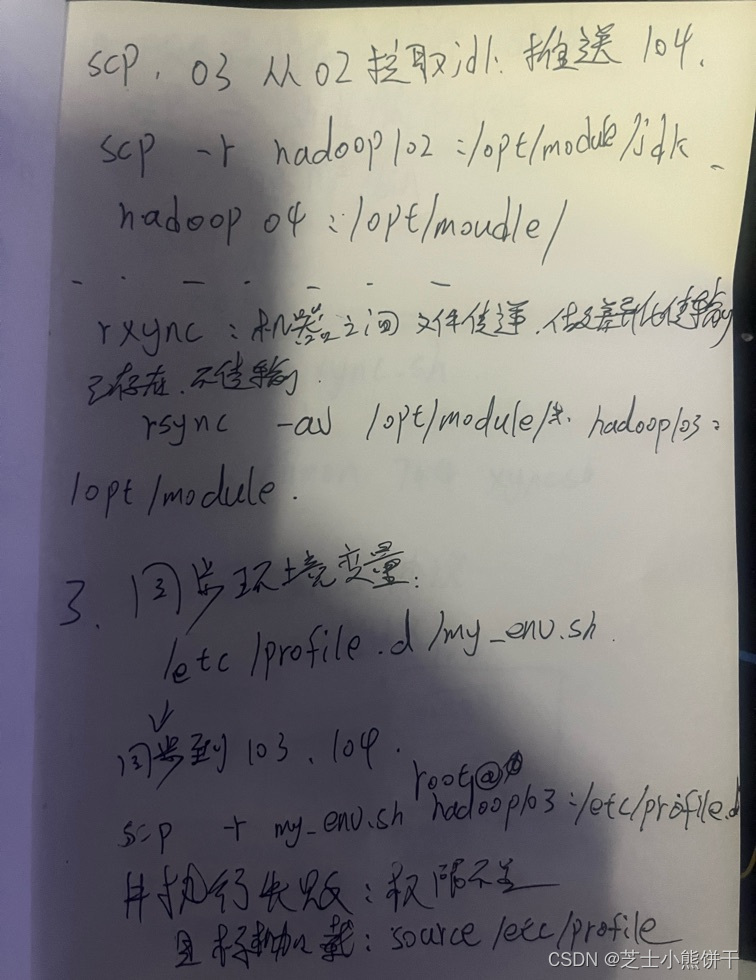 scp. 03 从 02 拉取jdk 推送 104.
scp -r hadoop102:/opt/module/jdk
hadoop 04:/opt/moudle/
rxync：机器之间 文件传递，做差异化传输
已存在，不传输.
rsync -av /opt/module/ hadoop103:
/opt/module.
3. 同步环境变量：
/etc/profile.d/my_env.sh.
同步到 103、104.
root@
scp -r my_env.sh hadoop103:/etc/profile.d
执行失败：权限不足
加载：source /etc/profile
CSDN @芝士小熊饼干